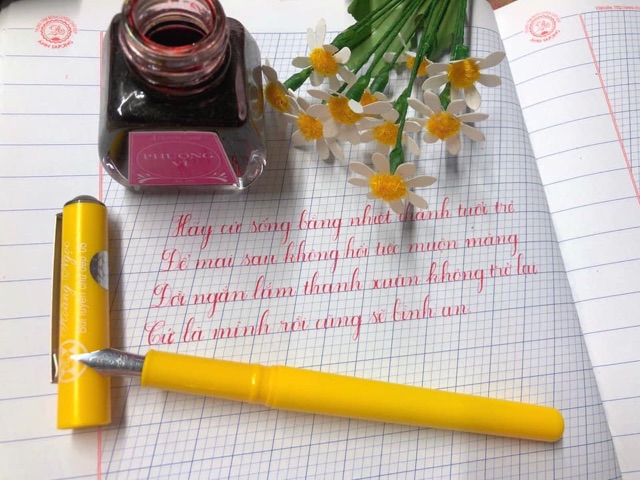 PHƯỢNG VĨ
Hãy cứ sống bằng nhiệt thành tuổi trẻ
Để mai sau không hối tiếc muộn màng
Đời ngắn lắm thanh xuân không trở lại
Cứ là mình rồi cũng sẽ bình an